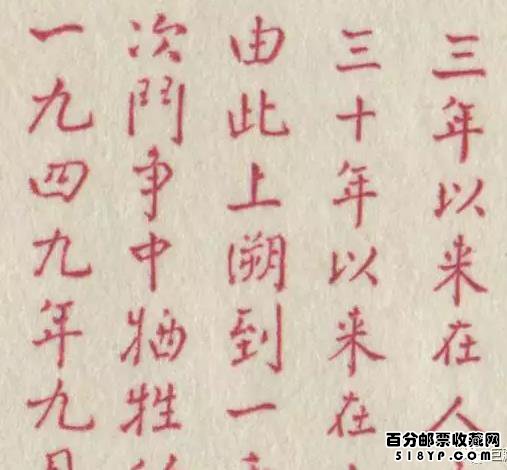 三年以来在人
三十年以来在
由此上溯到一
次鬥争中牺牲
一九四九年九月
百分邮票收藏网
518YP.com